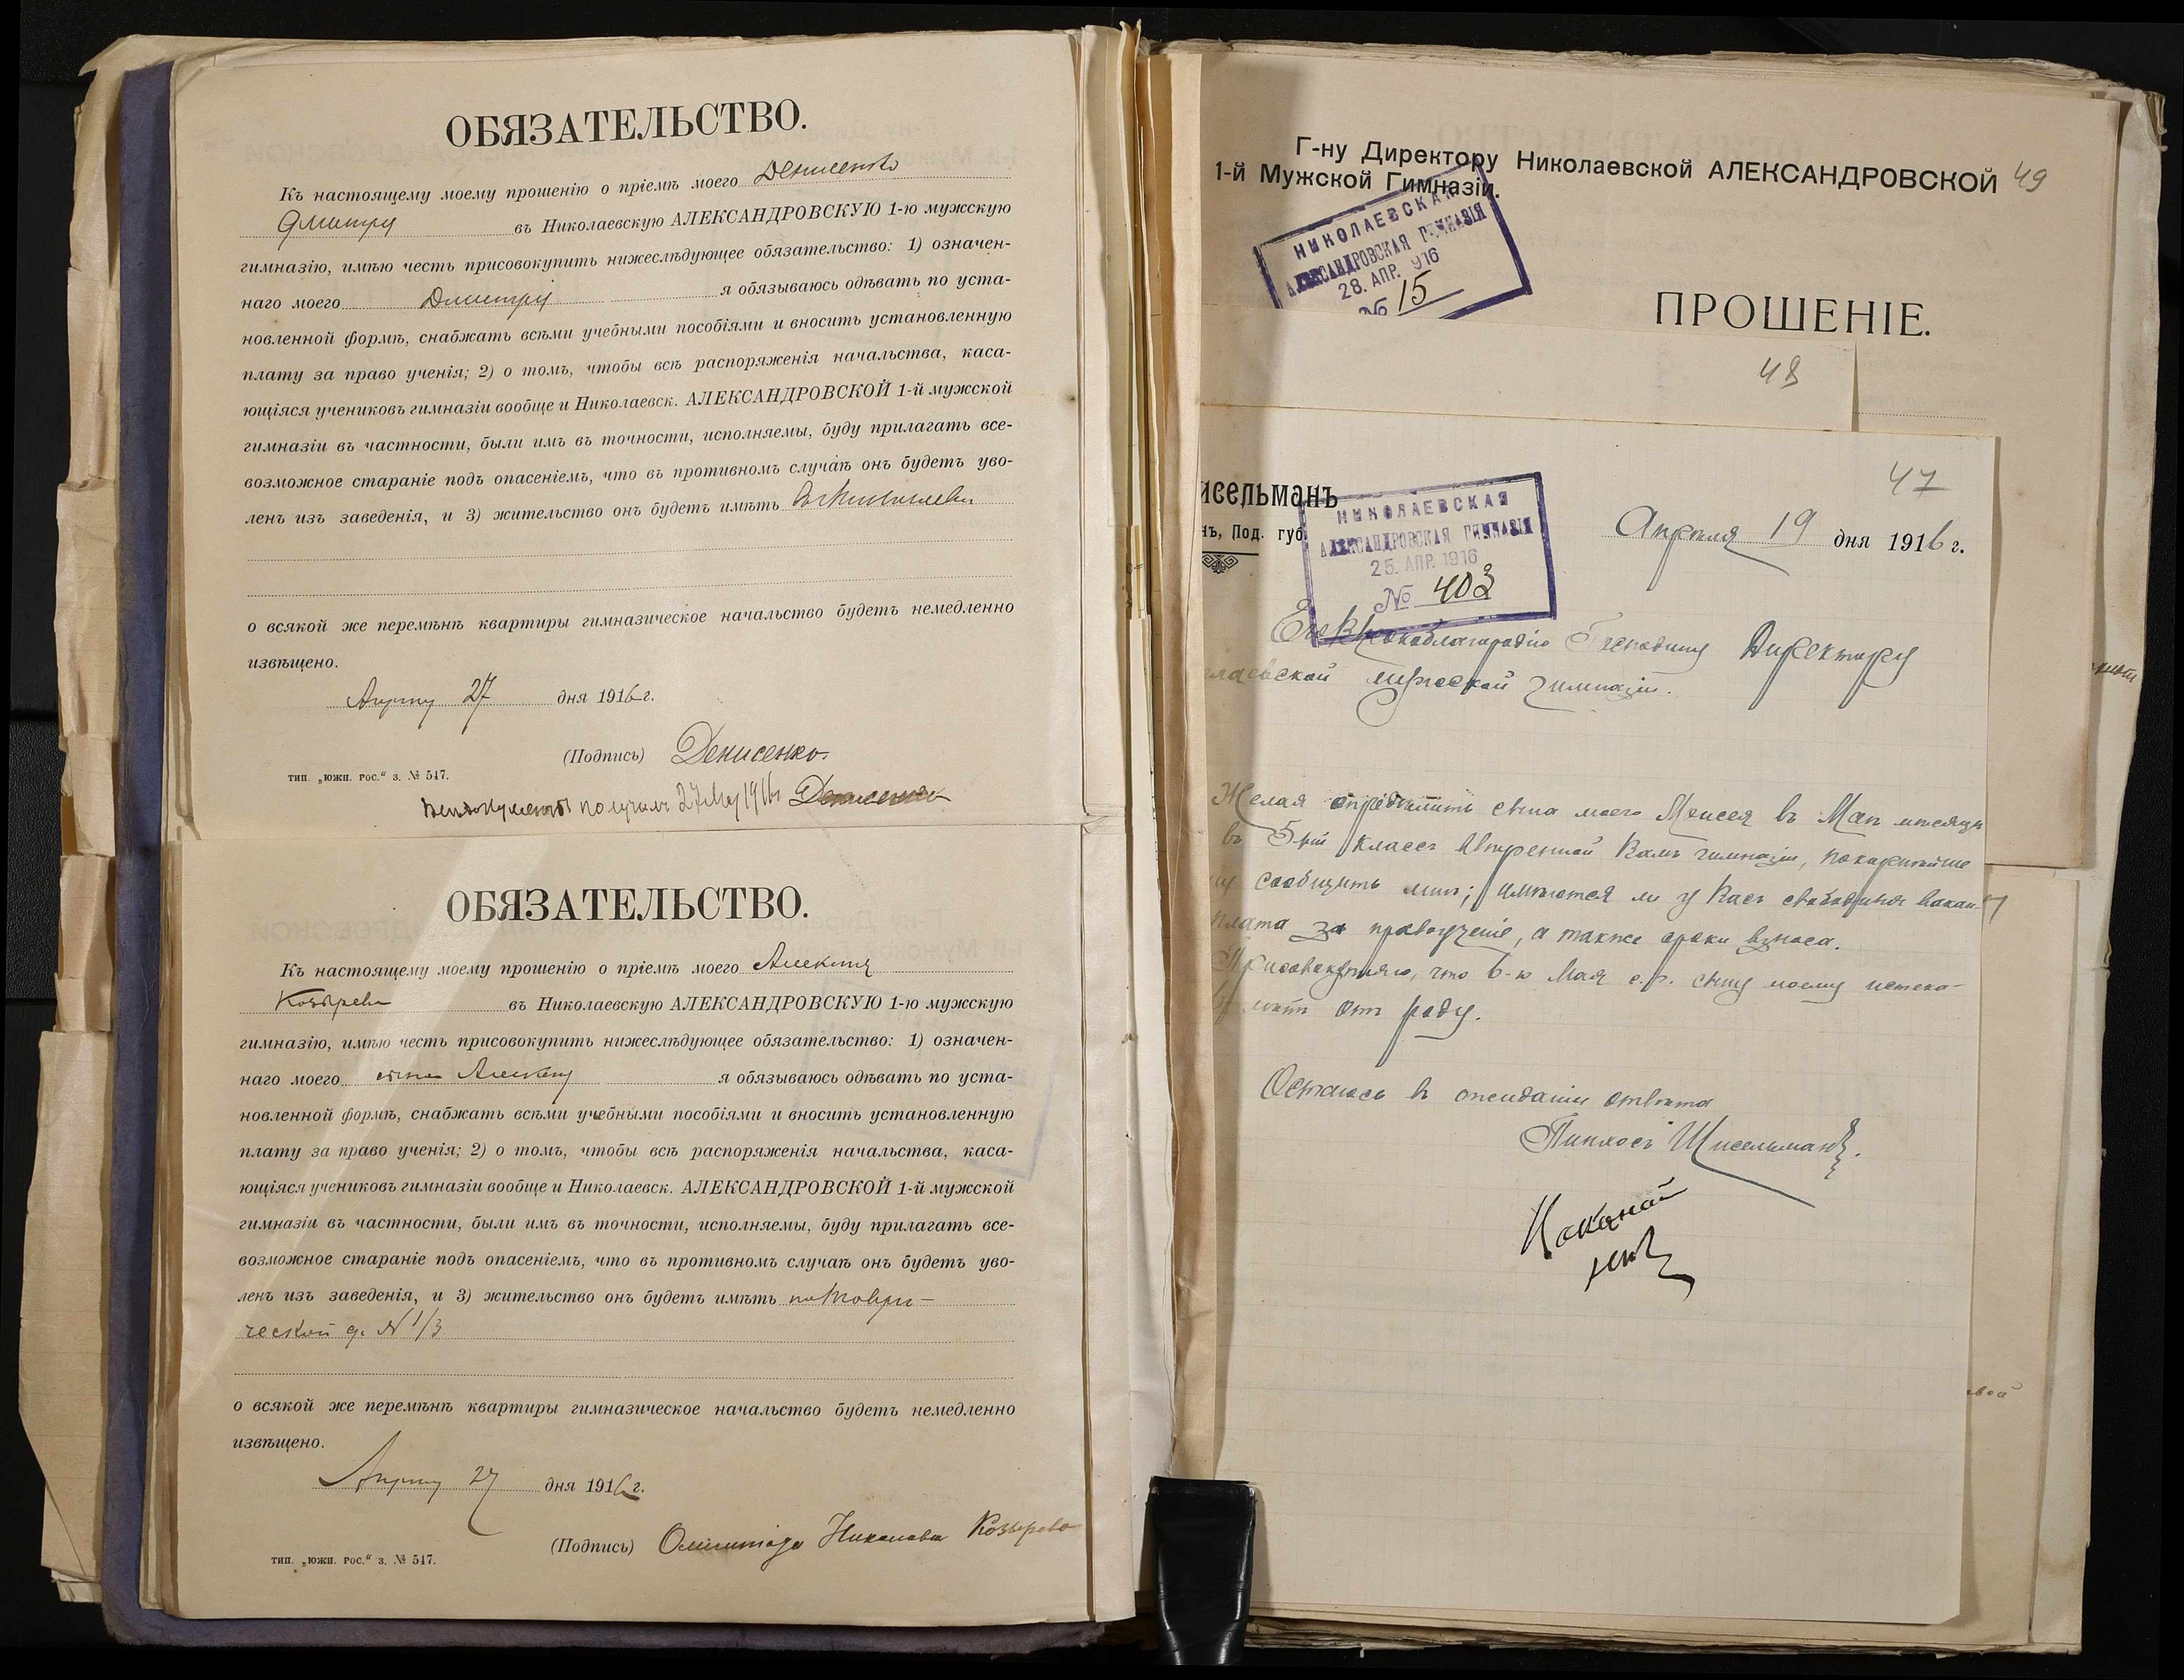 ОБЯЗАТЕЛЬСТВО.
Къ настоящему моему прошенію о пріемѣ моего Денисенко
Дмитрія въ Николаевскую АЛЕКСАНДРОВСКУЮ 1-ю мужскую
гимназію, имѣю честь присовокупить нижеслѣдующее обязательство: 1) означен-
наго моего Дмитрія я обязываюсь одѣвать по уста-
новленной формѣ, снабжать всѣми учебными пособіями и вносить установленную
плату за право ученія; 2) о томъ, чтобы всѣ распоряженія начальства, каса-
ющіяся учениковъ гимназіи вообще и Николаевск. АЛЕКСАНДРОВСКОЙ 1-й мужской
гимназіи въ частности, были имъ въ точности, исполняемы, буду прилагать все-
возможное стараніе подъ опасеніемъ, что въ противномъ случаѣ онъ будетъ уво-
ленъ изъ заведенія, и 3) жительство онъ будетъ имѣть въ Николаевѣ
о всякой же перемѣнѣ квартиры гимназическое начальство будетъ немедленно
извѣщено.
Апрѣля 27 дня 1916 г.
(Подпись) Денисенко
тип. „южн. рос.“ з. № 547.
документы получилъ 27 1916 Денисенко
ОБЯЗАТЕЛЬСТВО.
Къ настоящему моему прошенію о пріемѣ моего Алексѣя
Козырева въ Николаевскую АЛЕКСАНДРОВСКУЮ 1-ю мужскую
гимназію, имѣю честь присовокупить нижеслѣдующее обязательство: 1) означен-
наго моего сына Алексѣя я обязываюсь одѣвать по уста-
новленной формѣ, снабжать всѣми учебными пособіями и вносить установленную
плату за право ученія; 2) о томъ, чтобы всѣ распоряженія начальства, каса-
ющіяся учениковъ гимназіи вообще и Николаевск. АЛЕКСАНДРОВСКОЙ 1-й мужской
гимназіи въ частности, были имъ въ точности, исполняемы, буду прилагать все-
возможное стараніе подъ опасеніемъ, что въ противномъ случаѣ онъ будетъ уво-
ленъ изъ заведенія, и 3) жительство онъ будетъ имѣть по Таври-
ческой д. № 1/3
о всякой же перемѣнѣ квартиры гимназическое начальство будетъ немедленно
извѣщено.
Апрѣля 27 дня 1916 г.
(Подпись) Николаевна Козырева
тип. „южн. рос.“ з. № 547.
Г-ну Директору Николаевской АЛЕКСАНДРОВСКОЙ 49
1-й Мужской Гимназіи.
НИКОЛАЕВСКАЯ
АЛЕКСАНДРОВСКАЯ ГИМНАЗІЯ
28. АПР. 916
№ 15
ПРОШЕНІЕ.
48
47
исельманъ
нъ, Под. губ.
НИКОЛАЕВСКАЯ
АЛЕКСАНДРОВСКАЯ ГИМНАЗІЯ
25. АПР. 1916
№ 403
Апрѣля 19 дня 1916 г.
Его Высокоблагородію Господину Директору
лаевской мужской гимназіи.
Желая опредѣлить сына моего Моисея въ Маѣ мѣсяцѣ
въ 5-ый классъ ввѣренной Вамъ гимназіи, покорнѣйше
сообщить мнѣ; имѣются ли у Васъ свободныя вакан-
плата за правоученіе, а также сроки взноса.
Присовокупляю, что 6-го Мая с.г. сыну моему истека-
лѣтъ отъ роду.
Остаюсь въ ожиданіи отвѣта
Пинхосъ Шисельманъ.
Ваканcій
нѣтъ